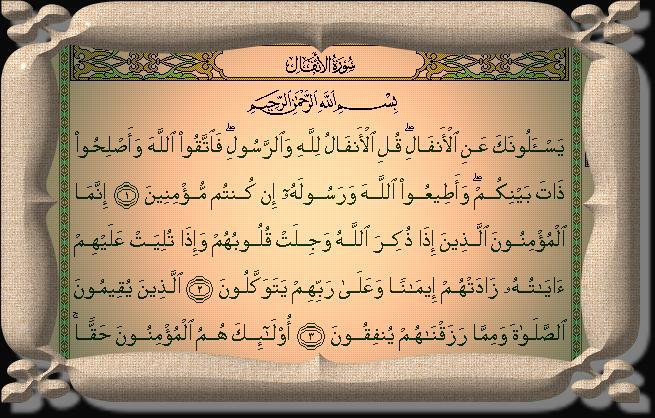 سُورَةُ الأَنفَالِ
بِسْمِ اللَّهِ الرَّحْمَٰنِ الرَّحِيمِ
يَسْـَٔلُونَكَ عَنِ ٱلْأَنفَالِۖ قُلِ ٱلْأَنفَالُ لِلَّهِ وَٱلرَّسُولِۖ فَٱتَّقُوا۟ ٱللَّهَ وَأَصْلِحُوا۟
ذَاتَ بَيْنِكُمْۖ وَأَطِيعُوا۟ ٱللَّهَ وَرَسُولَهُۥٓ إِن كُنتُم مُّؤْمِنِينَ ١ إِنَّمَا
ٱلْمُؤْمِنُونَ ٱلَّذِينَ إِذَا ذُكِرَ ٱللَّهُ وَجِلَتْ قُلُوبُهُمْ وَإِذَا تُلِيَتْ عَلَيْهِمْ
ءَايَٰتُهُۥ زَادَتْهُمْ إِيمَٰنًا وَعَلَىٰ رَبِّهِمْ يَتَوَكَّلُونَ ٢ ٱلَّذِينَ يُقِيمُونَ
ٱلصَّلَوٰةَ وَمِمَّا رَزَقْنَٰهُمْ يُنفِقُونَ ٣ أُو۟لَٰٓئِكَ هُمُ ٱلْمُؤْمِنُونَ حَقًّاۚ